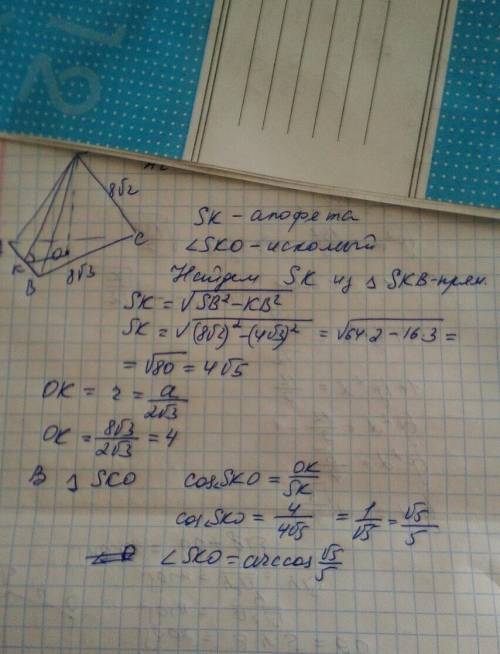 8√2
C
K
O
B
8√3
SK - апофема
∠SKO - искомый
Найдем SK из △ SKB - прям.
SK = √(SB² - KB²)
SK = √((8√2)² - (4√3)²) = √(64·2 - 16·3) =
= √80 = 4√5
OK = r = a/(2√3)
OK = 8√3/(2√3) = 4
В △ SKO cos SKO = OK/SK
cos SKO = 4/(4√5) = 1/√5 = √5/5
∠SKO = arccos √5/5